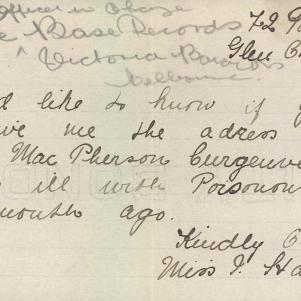 Officer in Charge
Base Records
Victoria Barracks
Melbourne
72
Glen
d like to know if y
ive me the adress
Mac Pherson Curgenve
ill with Poisonou
month ago.
Kindly O
Miss J. Ha